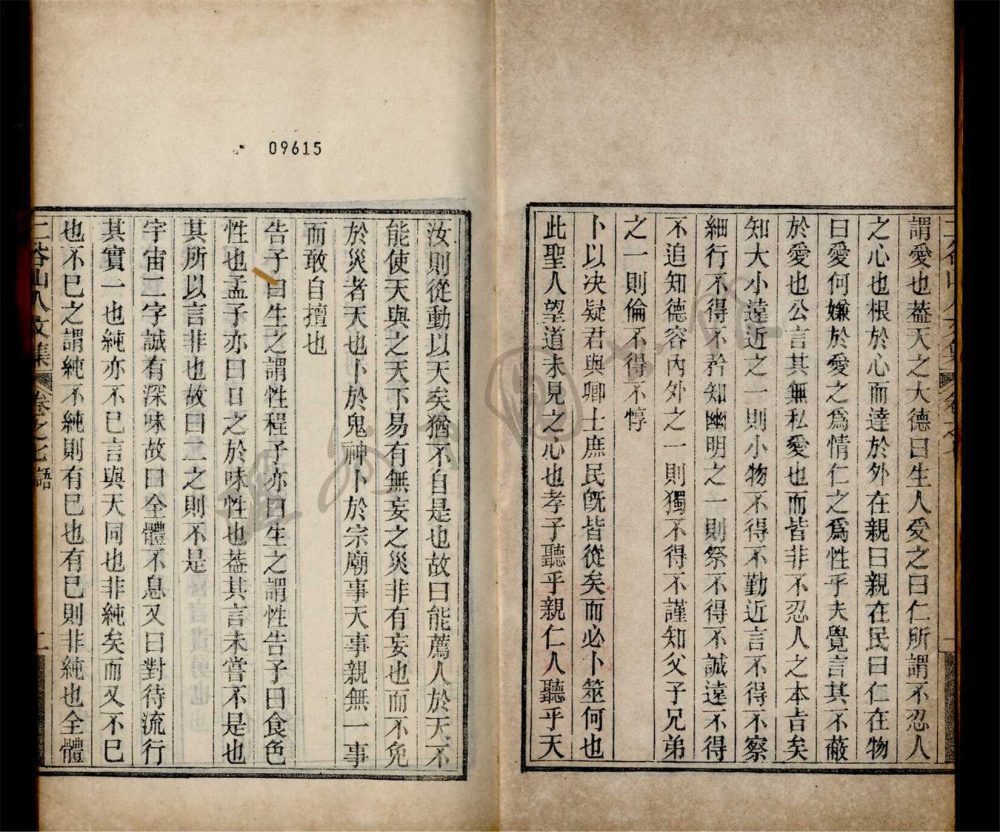 謂愛也葢天之大德曰生人受之曰仁所謂不忍人
之心也根於心而達於外在親曰親在民曰仁在物
曰愛何嫌於愛之爲情仁之爲性乎夫覺言其不蔽
於愛也公言其無私愛也而皆非不忍人之本吉矣
知大小遠近之一則小物不得不勤近言不得不察
細行不得不矜知幽明之一則祭不得不誠遠不得
不追知德容內外之一則獨不得不謹知父子兄弟
之一則倫不得不惇
卜以决疑君與卿士庶民旣皆從矣而必卜筮何也
此聖人望道未見之心也孝子聽乎親仁人聽乎天
09615
汝則從動以天矣猶不自是也故曰能薦人於天不
能使天與之天下易有無妄之災非有妄也而不免
於災者天也卜於鬼神卜於宗廟事天事親無一事
而敢自擅也
告子曰生之謂性程子亦曰生之謂性告子曰食色
性也孟子亦曰口之於味性也葢其言未嘗不是也
其所以言非也故曰二之則不是
宇宙二字誠有深味故曰全體不息又曰對待流行
其實一也純亦不已言與天同也非純矣而又不已
也不已之謂純不純則有已也有已則非純也全體
二谷山人文集 卷之七語 二